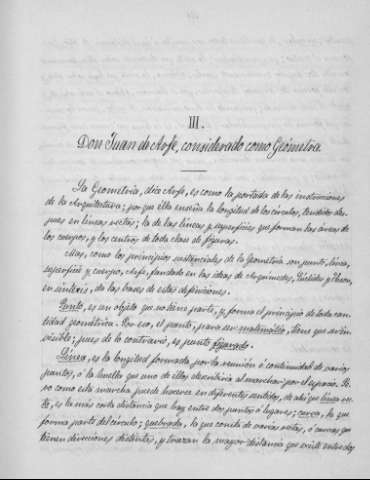 III.
Don Juan de Arfe, considerado como Geómetra.
La Geometría, dice Arfe, es como la portada de las instrucciones
de la Arquitectura; por que ella enseña la longitud de los círculos, tendidos des-
pues en lineas rectas; la de las lineas y superficies que forman las áreas de
los cuerpos, y los centros de toda clase de figuras.
Mas, como los principios sustanciales de la Geometría son punto, linea,
superficie y cuerpo, Arfe, fundado en las ideas de Arquimedes, Euclides y
en sintesis, da las bases de estas definiciones.
Punto, es un objeto que no tiene parte, y forma el principio de toda can-
tidad geométrica. Por eso, el punto, para ser matemático, tiene que ser in-
visible; pues de lo contrario, es punto figurado.
Linea, es la longitud formada por la reunión ó continuidad de varios
puntos, ó la huella que uno de ellos describiría al marchar por el espacio. Pe-
ro como esta marcha puede hacerse en diferentes sentidos, de ahí que linea rec-
ta, es la más corta distancia que hay entre dos puntos ó lugares; curva, la que
forma parte del círculo; quebrada, la que consta de varias rectas, ó curvas que
tienen direcciones distintas, y trazan la mayor distancia que existe entre dos